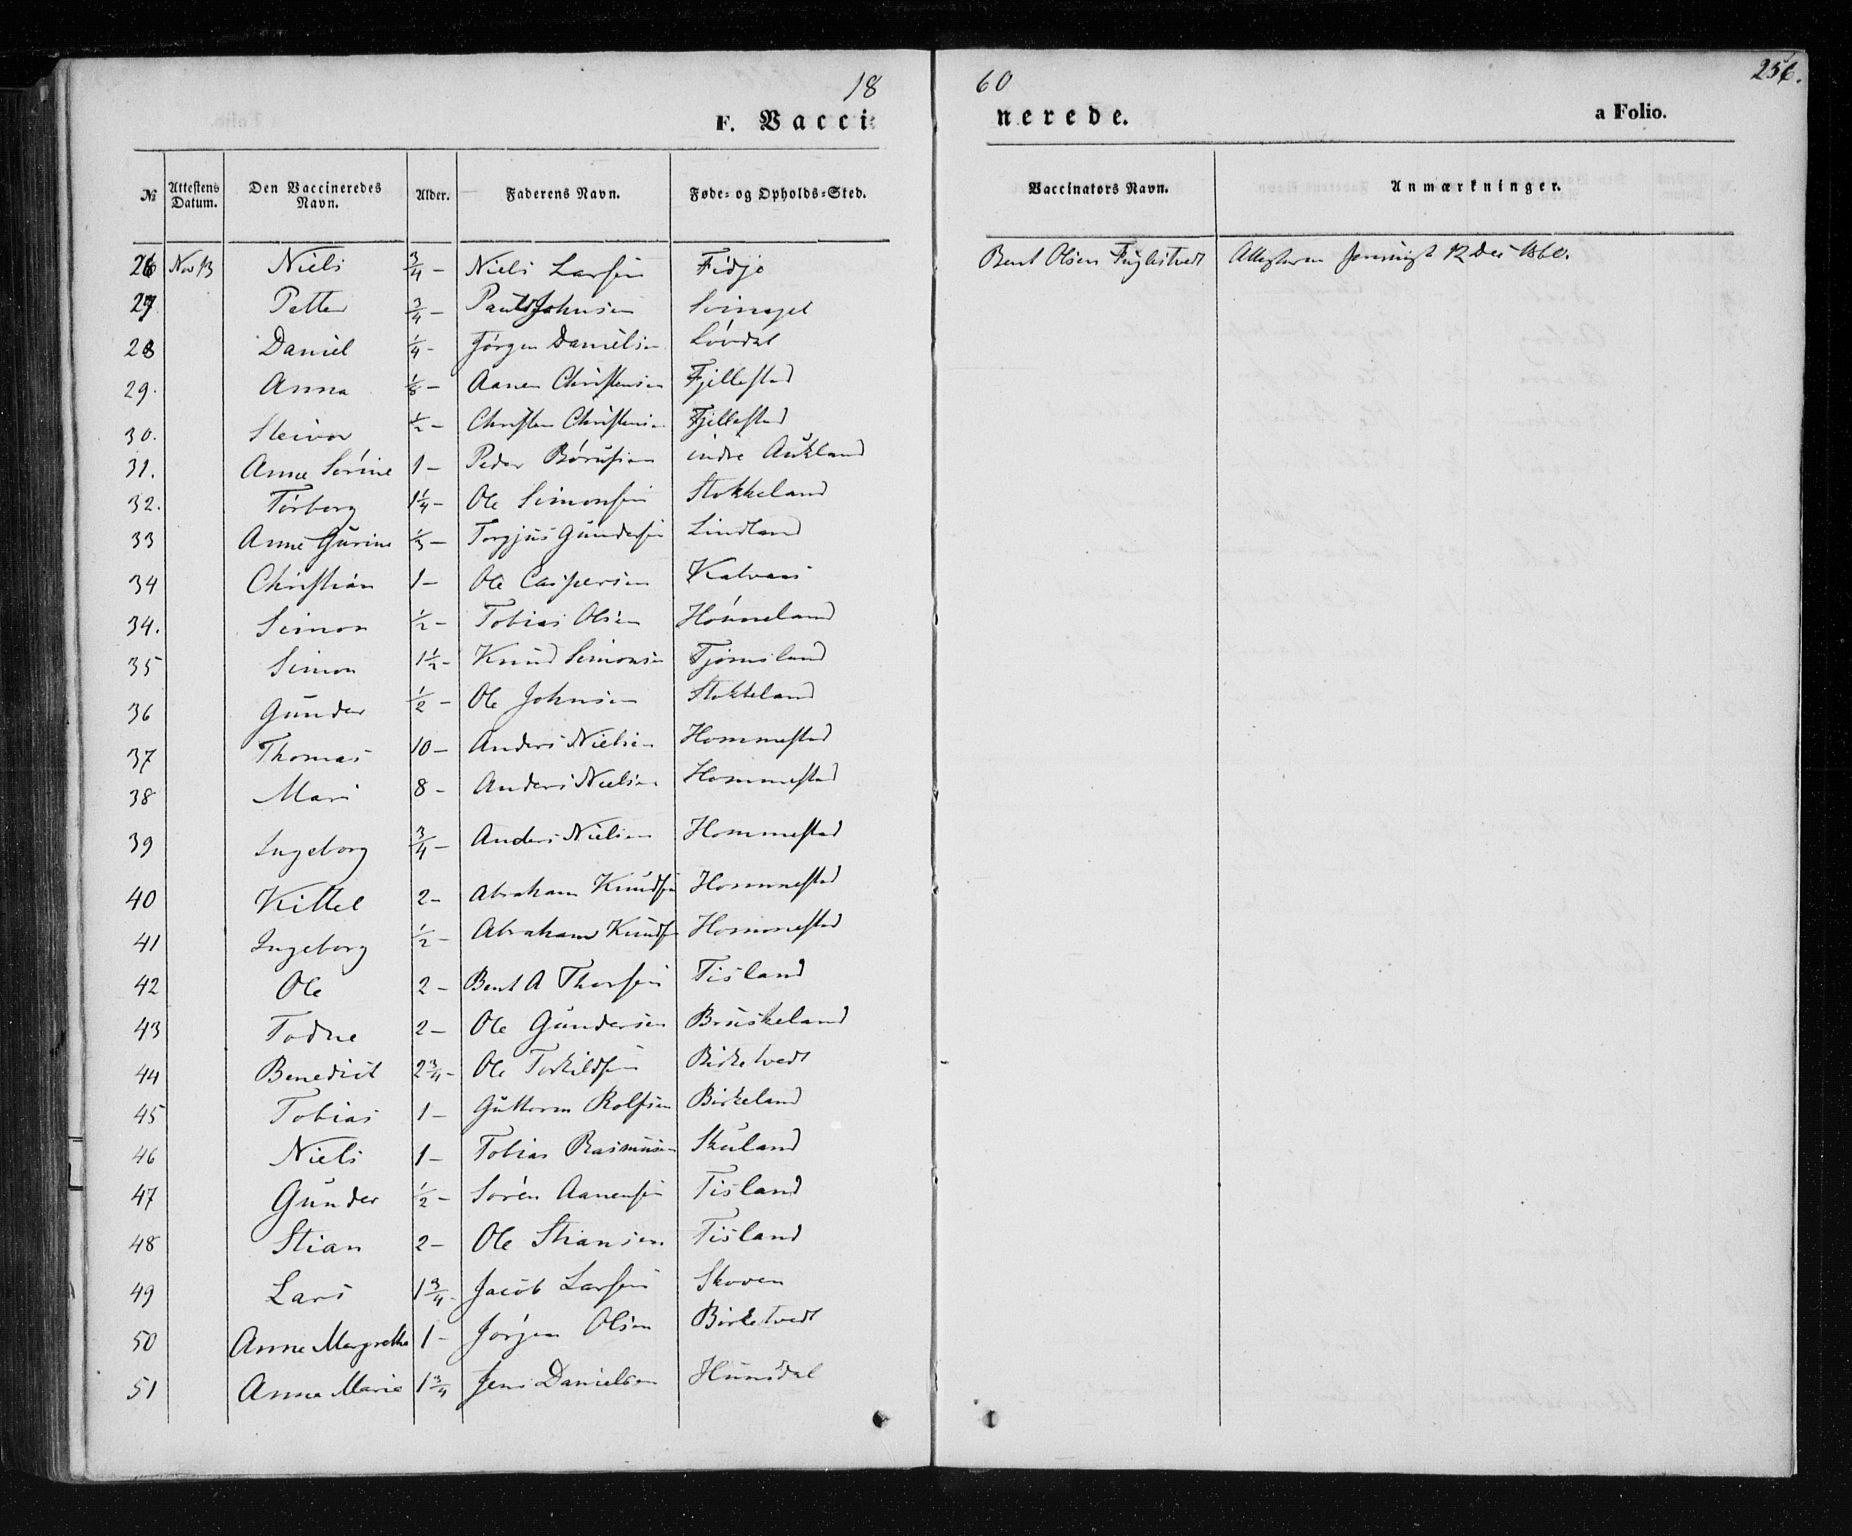 18 60 256.
F. Vaccinerede. a Folio.
№ Attestens Datum. Den Vaccineredes Navn. Alder. Faderens Navn. Føde- og Opholds-Sted. Vaccinators Navn. Anmærkninger.
26 Nov 13 Niels 3/4 – Niels Larsen Fidje Bent Olsen Fuglestvedt 12 Dec 1860.
27 Petter 3/4 – Paul Johnsen Svinagel
28 Daniel 1/4 – Jørgen Danielsen Løvdal
29. Anna – Aanen Christensen Fjellestad
30. Steivor 1/2 – Christen Christensen Fjellestad
31. Anne Sørine 1 – Peder Børufsen indre Aukland
32. Torborg 1 1/4 – Ole Simonsen Stokkeland
33 Anne Gurine 1/3 – Torgjus Gundersen Lindland
34 Christian 1 – Ole Caspersen Kalvaas
34. Simon 1/2 – Tobias Olsen Hønneland
35 Simon 1 1/2 – Knud Simonsen Tjomsland
36 Gunder 1/2 – Ole Johnsen Stokkeland
37 Thomas 10 – Anders Nielsen Hommestad
38 Mari 8 – Anders Nielsen Hommestad
39 Ingeborg 3/4 – Anders Nielsen Hommestad
40 Kittel 2 – Abraham Knudsen Hommestad
41 Ingeborg 1/2 – Abraham Knudsen Hommestad
42 Ole 2 – Bent A Thorsen Tisland
43 Todne 2 – Ole Gundersen Bruskeland
44 Benedict 2 3/4 – Ole Torkildsen Birketvedt
45 Tobias 1 – Guttorm Rolfsen Birkeland
46 Niels 1 – Tobias Rasmusen Skuland
47 Gunder 1/2 – Sørén Aanensen Tisland
48 Stian 2 – Ole Stiansen Tisland
49 Lars 1 3/4 – Jacob Larsen Skoven
50 Anne Margrethe 1 – Jørgen Olsen Birketvedt
51 Anne Marie 1 3/4 – Jens Danielsen Hunsdal